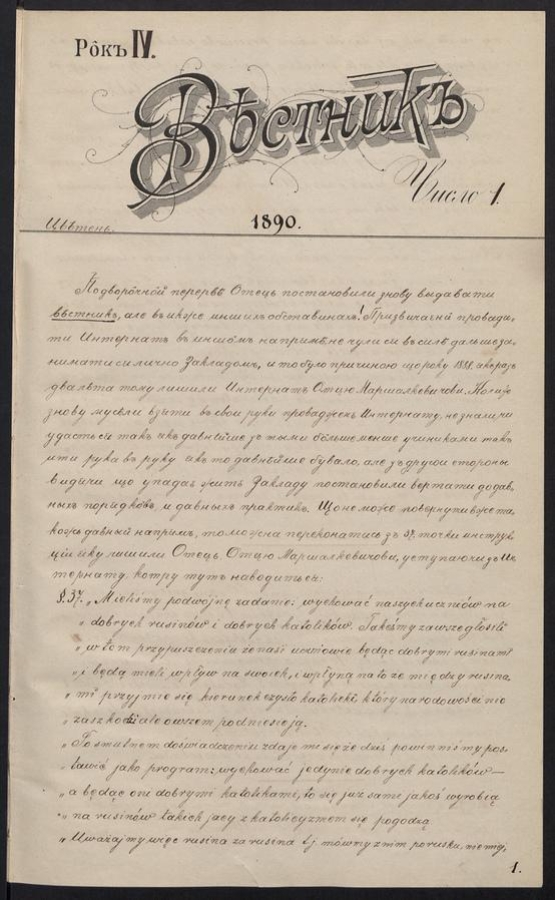 Рôкъ IV.
Вѣстникъ
Число 1.
Цвѣтень.
1890.
По дворочнôй перервѣ Отець постановили знову выдавати
вѣстникъ, але въ инших обставинах! Призвычаєнй провади-
ти Интернатъ въ иншôмъ напримѣ не чули си въ силѣ дальше за-
нимати си лично Закладомъ, и то було причиною що року 1888.
два лѣта тому лишили Интернатъ Отцю Маршалкевичови.
знову мусѣли взяти въ свои руки провадженє Интернату, не знали чи
удасть сѧ такъ як давнѣйше зъ тыми бôльше менше учениками такъ
ити рука въ руку як то давнѣйше бувало, але зъ другои стороны
видячи що упадає житє Закладу постановили вертати до дав-
ныхъ порядкôвъ, и давныхъ практикъ. Що не може повернути вже та-
кожъ давный напримъ, то можна переконатись зъ 37. точки инструк-
ціи яку лишили Отець, Отцю Маршалкевичови, уступаючи зъ Ин-
тернату, котру тутъ наводить ся:
§. 37. „Mieliśmy podwójne zadanie: wychować naszych uczniów na
„ dobrych rusinów i dobrych katolików. Takeśmy zawsze głosili
„ w tem przypuszczeniu że nasi uczniowie będąc dobrymi rusinami
„ i będą mieli wpływ na swoich, i wpłyną na to że między rusina-
„ mi przyjmie się kierunek czysto katolicki, który narodowości nie
„ zaszkodzi ale owszem podniesie ją.
„ Po smutnem doświadczeniu zdaje mi się że dziś powinniśmy pos-
„ tawić jako program: wychować jedynie dobrych katolików —
„ a będąc oni dobrymi katolikami, to się już sami jakoś wyrobią
„ na rusinów takich jacy z katolicyzmem się pogodzą
„ Uważajmy więc rusina za rusina tj mówmy z nim po rusku,
1.